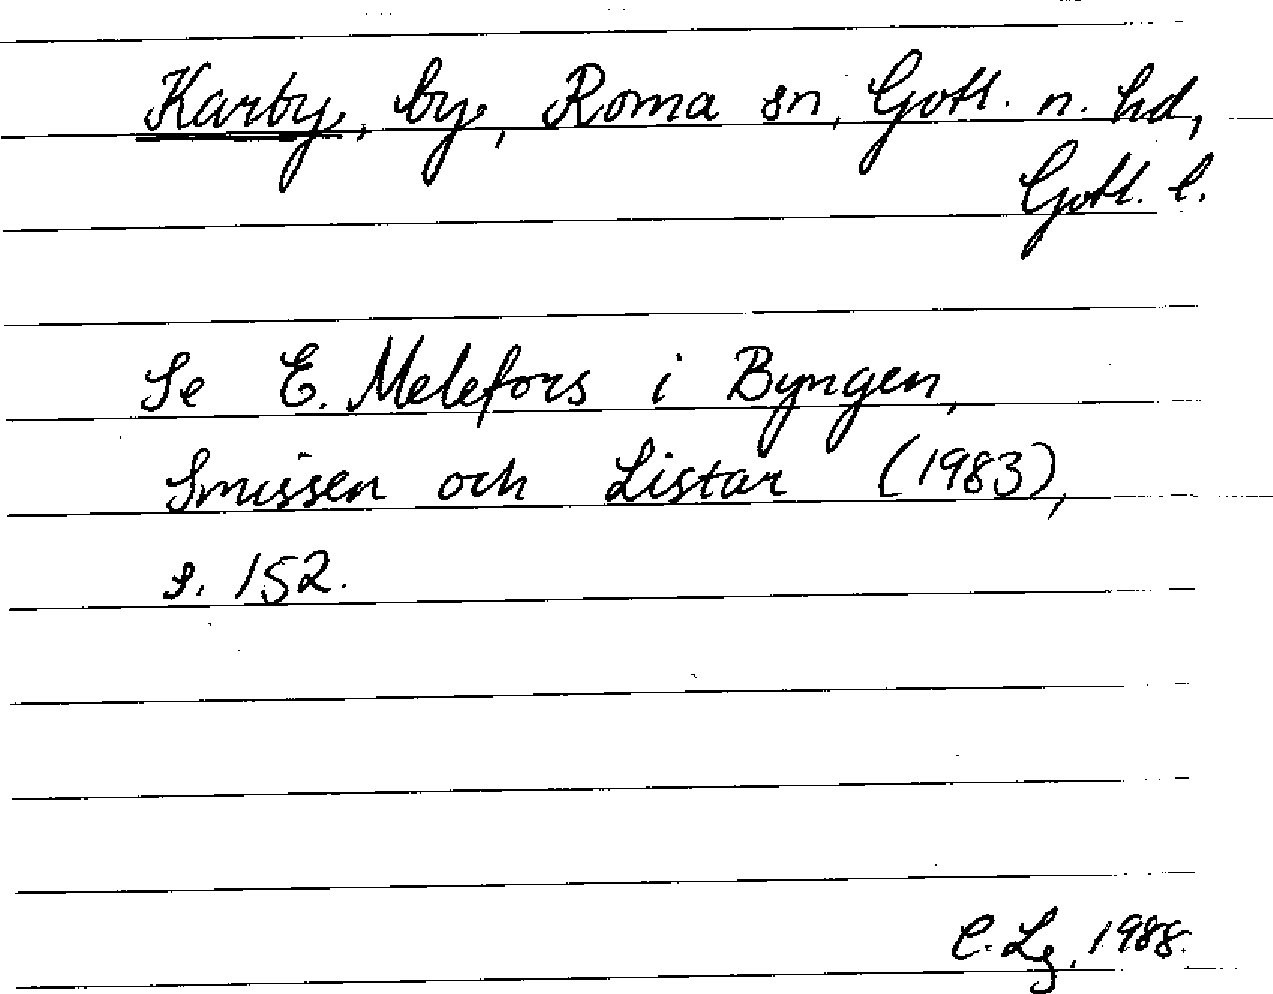 Karby, by, Roma sn, Gotl. n. hd,
Gotl. l.
Se E. Melefors i Byngen,
Smissen och Listar (1983),
s. 152.
C. Lg, 1988.